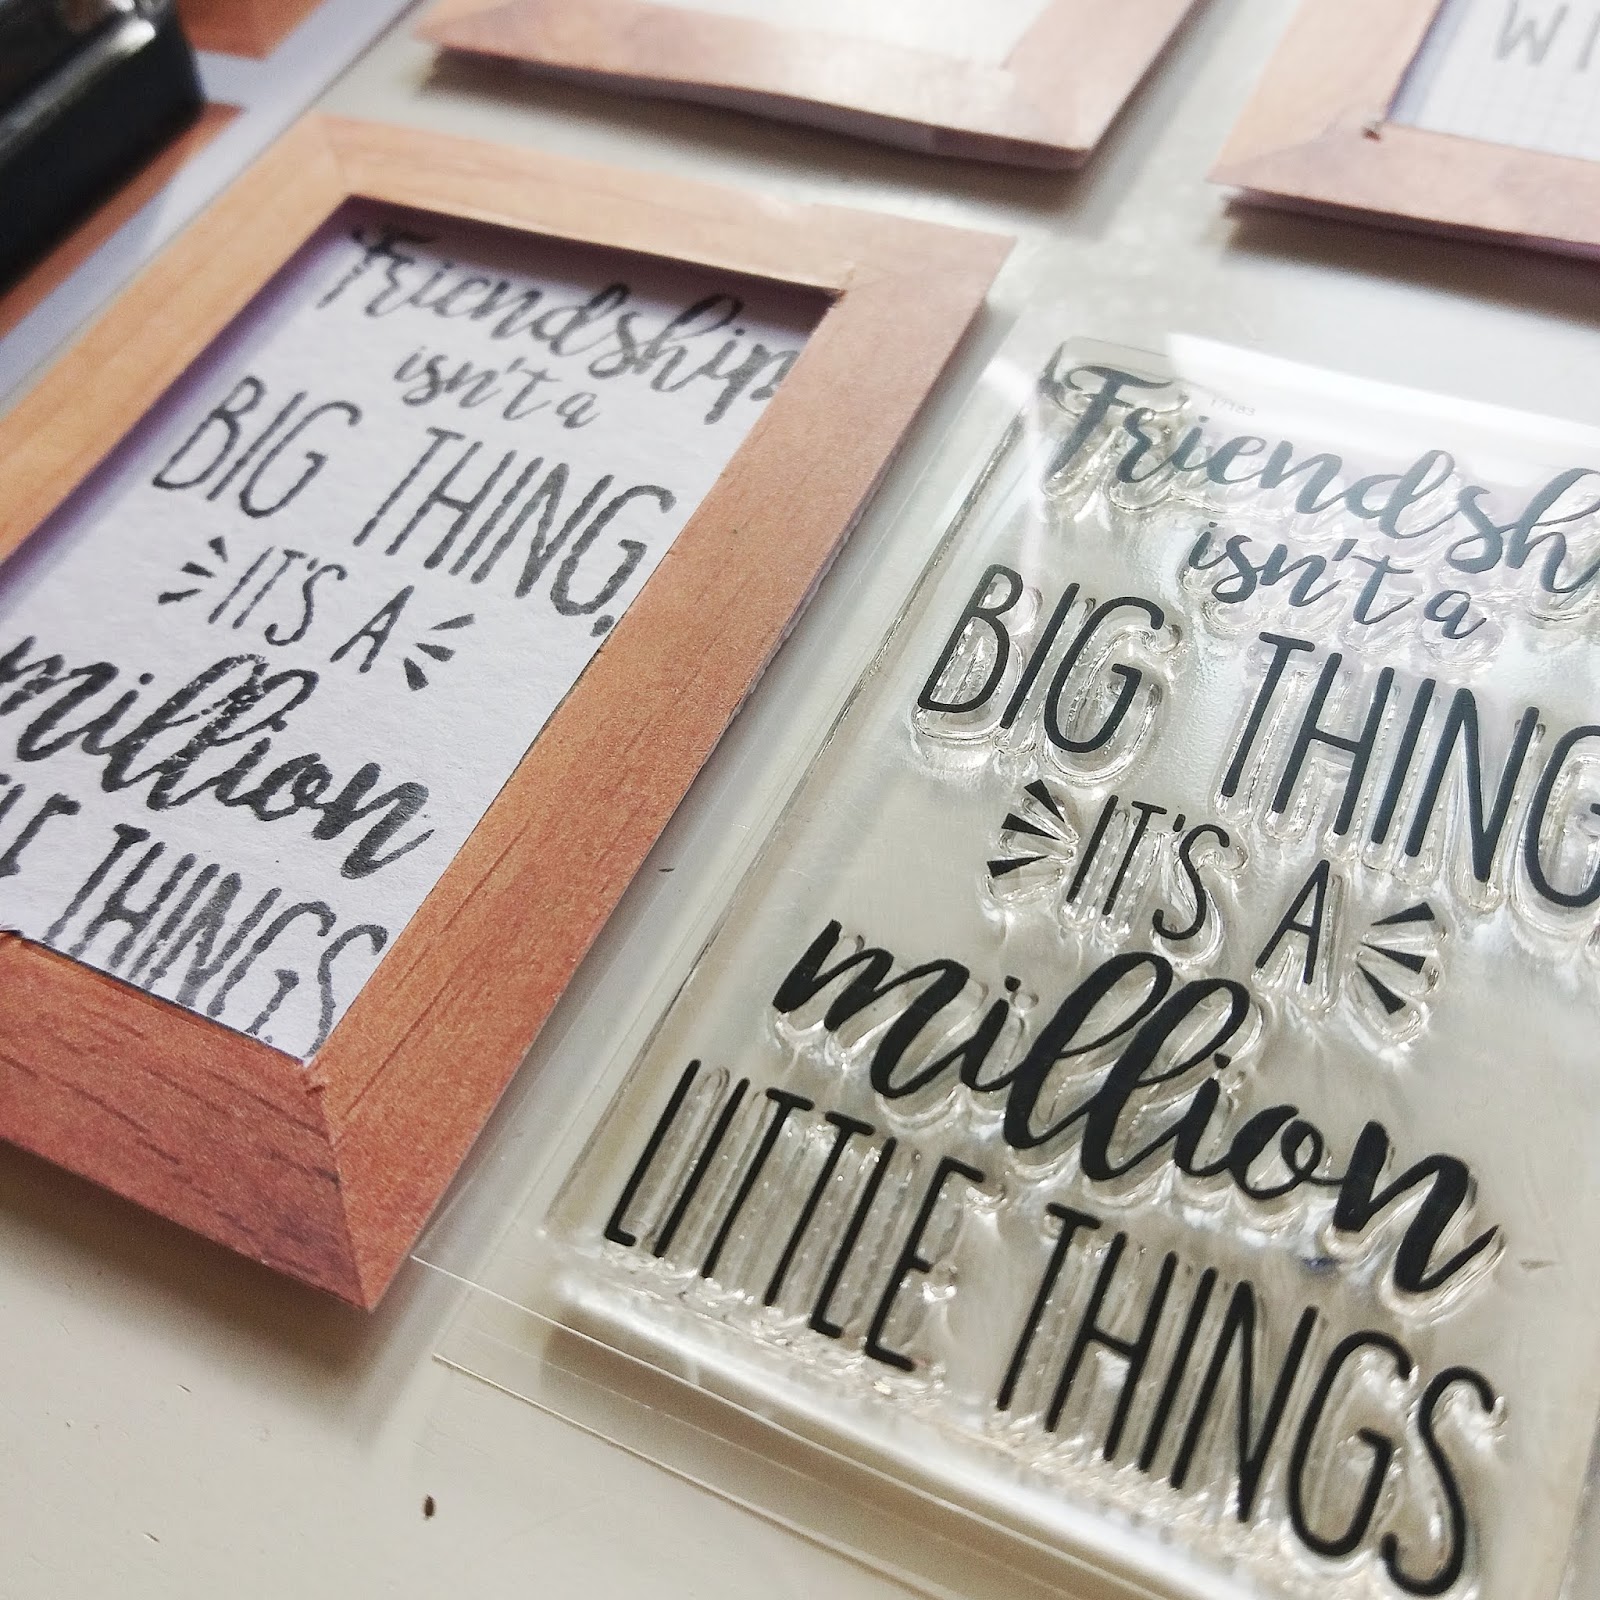 Friendship
isn't a
BIG THING.
IT'S A
million
THINGS
WI
17183
Friendsh
isn't a
BIG THING
IT'S A
million
LITTLE THINGS